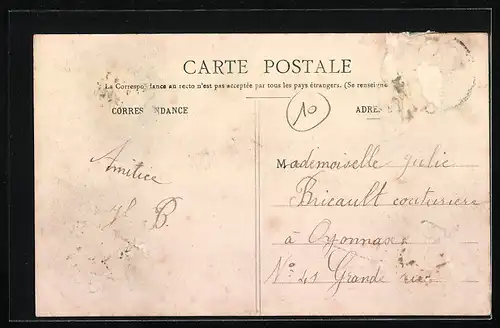 CARTE POSTALE
La Correspondance au recto n'est pas acceptée par tous les pays étrangers. (Se renseigne
CORRESPONDANCE
10
ADRES
Mademoiselle Julie
Bricault couturiere
à Oyonnax
N° 41 Grande rue
Amitiee
B.